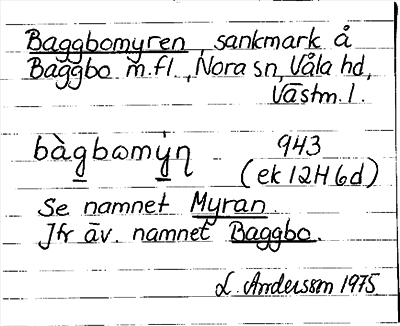 Baggbomyren, sankmark å
Baggbo m.fl., Nora sn, Våla hd,
Västm. l.
bàg̲bωmý̲ƞ 943
(ek 12H 6d)
Se namnet Myran.
Jfr äv. namnet Baggbo.
L. Andersson 1975